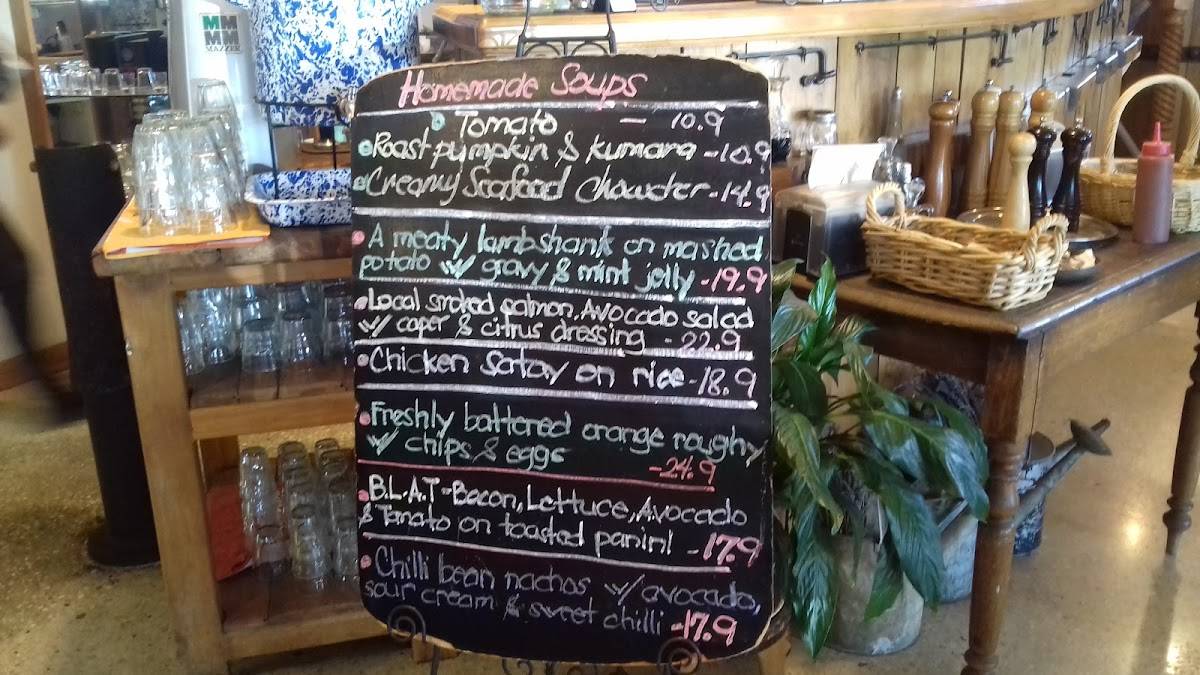 MM
MM
MAZZER
Homemade Soups
Tomato - 10.9
Roast pumpkin & kumara - 10.9
Creamy Seafood chowder - 14.9
A meaty lambshank on mashed
potato w/ gravy & mint jelly - 19.9
Local smoked salmon, Avocado salad
w/ caper & citrus dressing - 22.9
Chicken Satay on rice - 18.9
Freshly battered orange roughy
w/ chips & eggs
- 24.9
B.L.A.T - Bacon, Lettuce, Avocado
& Tomato on toasted panini - 17.9
Chilli bean nachos w/ avocado,
sour cream & sweet chilli - 17.9